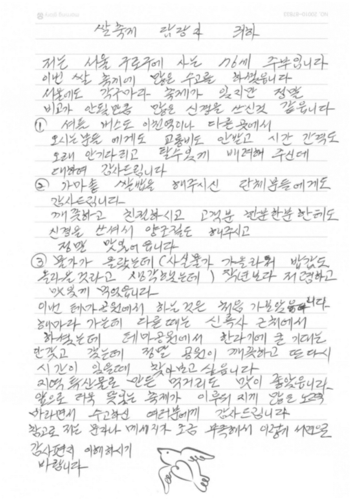 쌀축제 담당자 귀하
저는 서울 구로구에 사는 76세 주부입니다
이번 쌀 축제에 많은 수고를 하셨읍니다
서울에도 각구마다 축제가 있지만 정말
비교가 안될만큼 많은 신경을 쓰신것 같읍니다
① 셔틀 버스도 이천역이나 다른 곳에서
오시는분들 에게도 교통비도 안받고 시간 간격도
오래 안기다리고 탈수있게 배려해 주신데
대하여 감사드립니다
② 가마솥 쌀밥을 해주시신 단체분들에게도
감사드립니다
깨끗하고 친절하시고 고객분 한분한분한테도
신경을 쓰셔서 양조절도 해주시고
정말 맛있어읍니다
③ 물가가 올랐는데 (사실물가 가올라 밥값도
올라올것라고 생각하였는데) 작년보다 저렴하고
맛있게 먹었읍니다
이번 테마공원에서 하는것은 처음 가보았읍니다
해마다 가는데 다른때는 신륵사 근처에서
하였는데 테마공원에서 한다기에 큰 기대는
안갖고 갔는데 정말 공원이 깨끗하고 또다시
시간이 있을때 찾아보고 싶읍니다
지역 특산물로 만든 먹거리도 맛이 좋았읍니다
앞으로 더욱 뜻있는 축제가 이루어 지게 많은 노력
바라면서 수고하신 여러분께 감사드립니다
참고로 저는 문자나 메세지가 조금 부족해서 이렇게 서면으로
감사편지 이해하시기
바랍니다